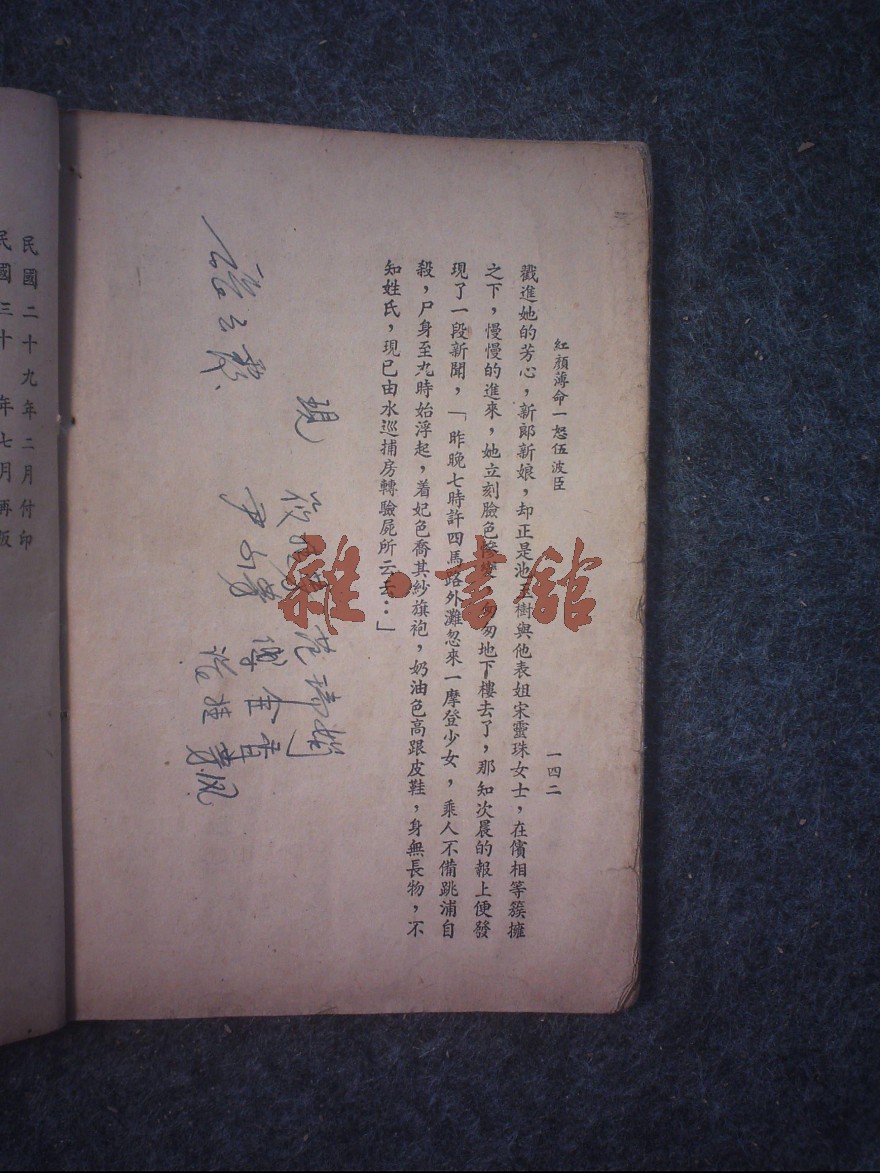 紅顏薄命一怒伍波臣 一四二
戳進她的芳心，新郎新娘，却正是池玉樹與他表姐宋靈珠女士，在儐相等簇擁
之下，慢慢的進來，她立刻臉色慘變，匆匆地下樓去了，那知次晨的報上便發
現了一段新聞，「昨晚七時許四馬路外灘忽來一摩登少女，乘人不備跳浦自
殺，尸身至九時始浮起，着妃色喬其紗旗袍，奶油色高跟皮鞋，身無長物，不
知姓氏，現已由水巡捕房轉驗屍所云云：」
現
雜·書館
民國二十九年二月付印
民國三十 年七月再版